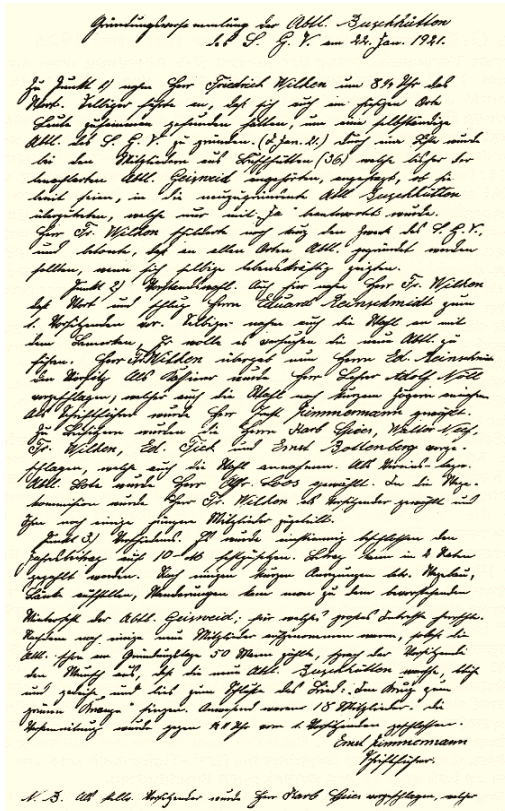 Gründungsversammlung der Abtl. Buschhütten
des S. G. V. am 22. Jan. 1921.
Zu Punkt 1) nahm Herr Friedrich Wilden um 8¼ Uhr das
Wort. Selbiger führte an, daß sich auch im hiesigen Orte
Leute zusammen gefunden hätten, um eine selbständige
Abtl. des S. G. V. zu gründen. (d. Jan. 21.) durch eine Liste wurde
bei den Mitgliedern aus Buschhütten (36) welche bisher der
benachbarten Abtl. Geisweid angehörten, angefragt, ob sie
bereit seien, in die neuzugründende Abtl. Buschhütten
überzutreten, welche nur mit Ja beantwortet wurde.
Herr Fr. Wilden schilderte noch kurz den Zweck des S. G. V.,
und betonte, daß an allen Orten Abtl. gegründet werden
sollten, wenn sich selbige lebenskräftig zeigten.
Punkt 2) Vorstandswahl. Auch hier nahm Herr Fr. Wilden
das Wort und schlug Herrn Eduard Reinschmidt zum
1. Vorsitzenden vor. Selbiger nahm auch die Wahl an mit
dem Bemerken, Er wolle es versuchen die neue Abtl. zu
führen. Herr Fr. Wilden übergab nun Herrn Ed. Reinschmidt
den Vorsitz. Als Kassierer wurde Herr Lehrer Adolf Nöll
vorgeschlagen, welcher auch die Wahl nach kurzem Zögern annahm.
Als Schriftführer wurde Herr Ernst Zimmermann gewählt.
Zu Beisitzern wurden die Herren Karl Heier, Walter
Fr. Wilden, Ed. Fick und Ernst Bottenberg vorge-
schlagen, welche auch die Wahl annahmen. Als Vereins- bezw.
Abtl. Bote wurde Herr Loos gewählt. In die Wege-
kommission wurde Herr Fr. Wilden als Vorsitzender gewählt und
Ihm noch einige jüngere Mitglieder zugeteilt.
Punkt 3.) Verschiedenes. Es wurde einstimmig beschlossen den
Jahresbeitrag auf 10 festzusetzen. kann in 2 Raten
gezahlt werden. Nach einigen kurzen Anregungen betr. Wegebau,
Bänke aufstellen, Wanderungen kam man zu dem bevorstehenden
Winterfest der Abtl. Geisweid; für welches großes Interesse herrschte.
Nachdem noch einige neue Mitglieder aufgenommen waren, sodaß die
Abtl. schon am Gründungstage 50 Mann zählte, sprach der Vorsitzende
den Wunsch aus, daß die neue Abtl. Buschhütten wachse, blühe
und gedeihe und ließ zum Schlusse das Lied: „Im Krug zum
grünen Kranze" singen. Anwesend waren 18 Mitglieder. Die
Versammlung wurde gegen ¼11 Uhr vom 1. Vorsitzenden geschlossen.
Ernst Zimmermann
Schriftführer.
N. B. Als stellv. Vorsitzender wurde Herr Karl Heier vorgeschlagen, welcher